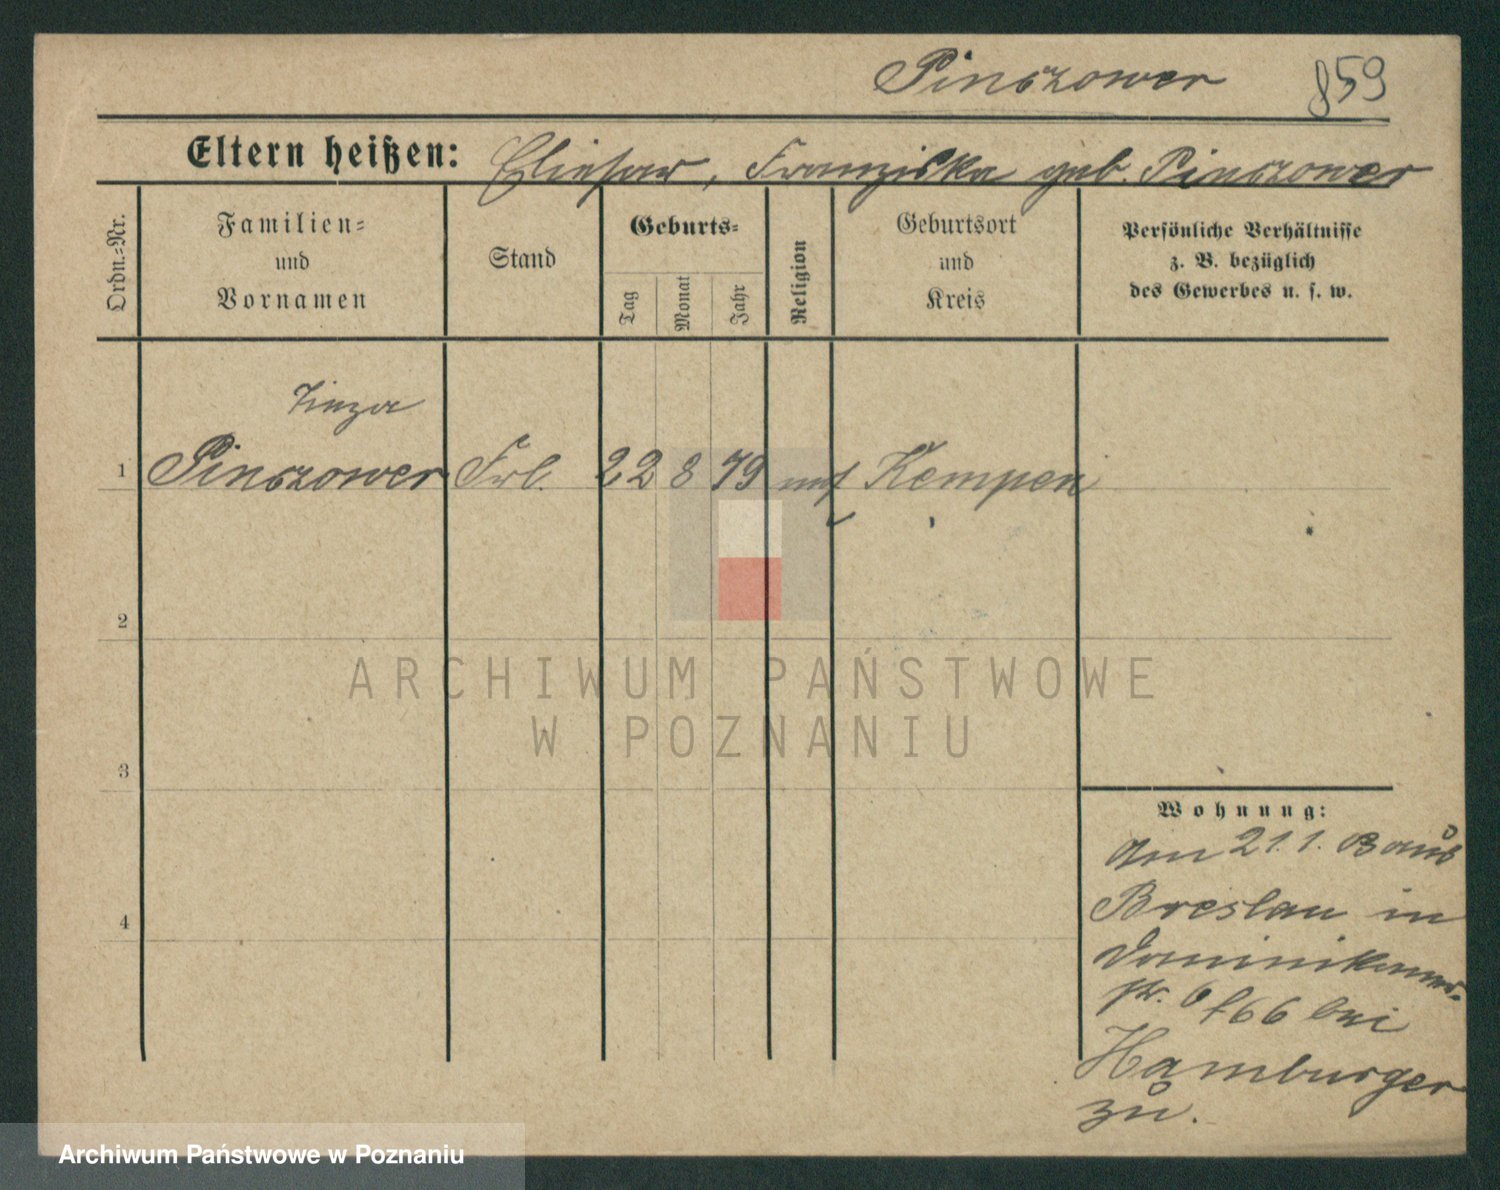 Pinczower 859
Eltern heißen: Eliesar, Franziska geb. Pinczower
Ordn.-Nr.
Familien-
und
Vornamen
Stand
Geburts-
Tag
Monat
Jahr
Religion
Geburtsort
und
Kreis
Persönliche Verhältnisse
z. B. bezüglich
des Gewerbes u. s. w.
1 Pinczower Frl. 22 8 79 mos Kempen
2
3
4
Wohnung:
Am 21.1. 13 aus
Breslau in
Dominikaner-
str. 6 bei
Hamburger
zu.
ARCHIWUM PAŃSTWOWE
W POZNANIU
Archiwum Państwowe w Poznaniu